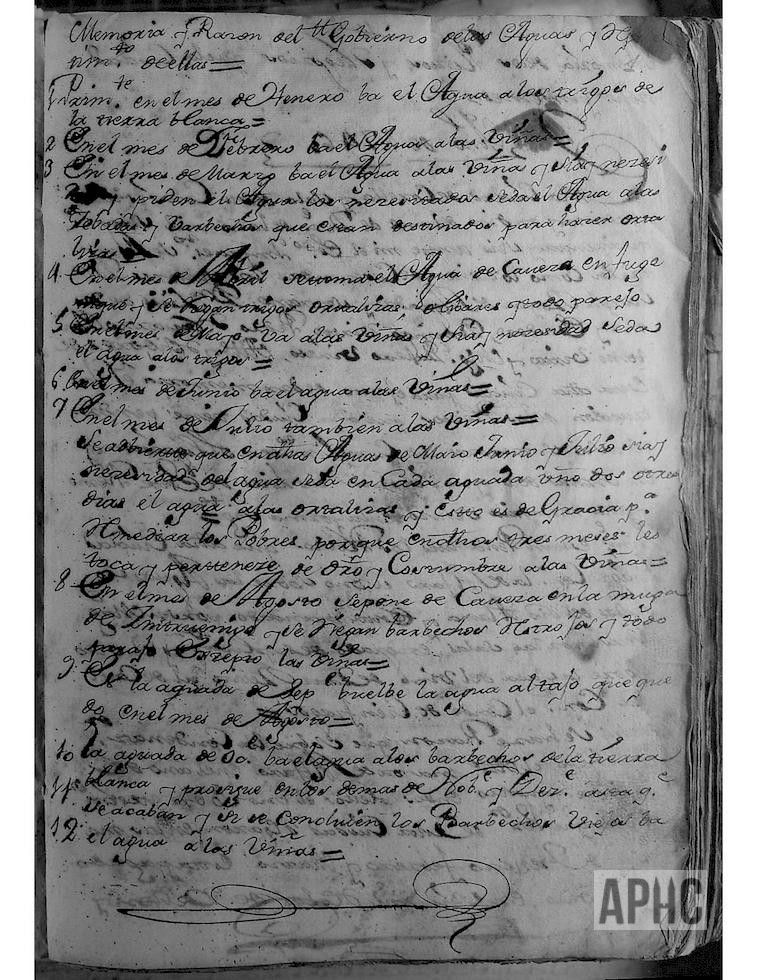 Memoria y Razon del Gobierno de las Aguas y
nim.to de ellas =
1 Prim.te en el mes de Henero ba el Agua a los trigos de
la tierra blanca =
2 En el mes de Febrero ba el Agua a las Viñas =
3 En el mes de Marzo ba el Agua a las Viñas y si ay nezesi
y piden el Agua los seda el Agua a las
y barbechos que estan destinados para hazer orta
lizas
4 En el mes de Abril se toma el Agua de Caveza en
y se riegan trigos ortalizas olibares y todo parejo
5 En el mes de Mayo va a las Viñas y si ay nezesidad seda
el agua a los trigos =
6 En el mes de Junio ba el agua a las Viñas =
7 En el mes de Julio tambien a las Viñas =
Se adbierte que en dhas Aguas de Maio Junio y Julio si ay
nezesidad del agua seda en Cada aguada uno dos o tres
dias el agua a las ortalizas y Esto es de Gracia p.a
Remediar los Pobres porque en dhos tres meses les
toca y perteneze de dro y Costumbre a las Viñas =
8 En el mes de Agosto se pone de Caveza en la muga
de Zintruenigo y se riegan barbechos Rastrojos y todo
parajo Exzepto las Viñas =
9 En la aguada de Sep.e buelbe la agua al tajo que que
do en el mes de Agosto =
10 la aguada de Oc. ba el agua a los barbechos de la tierra
11 blanca y prosigue en los demas de Nob.e y Dez.e asta q.e
se acaban y si se concluien los Barbechos Viejos ba
12 el agua a las Viñas =
APHC